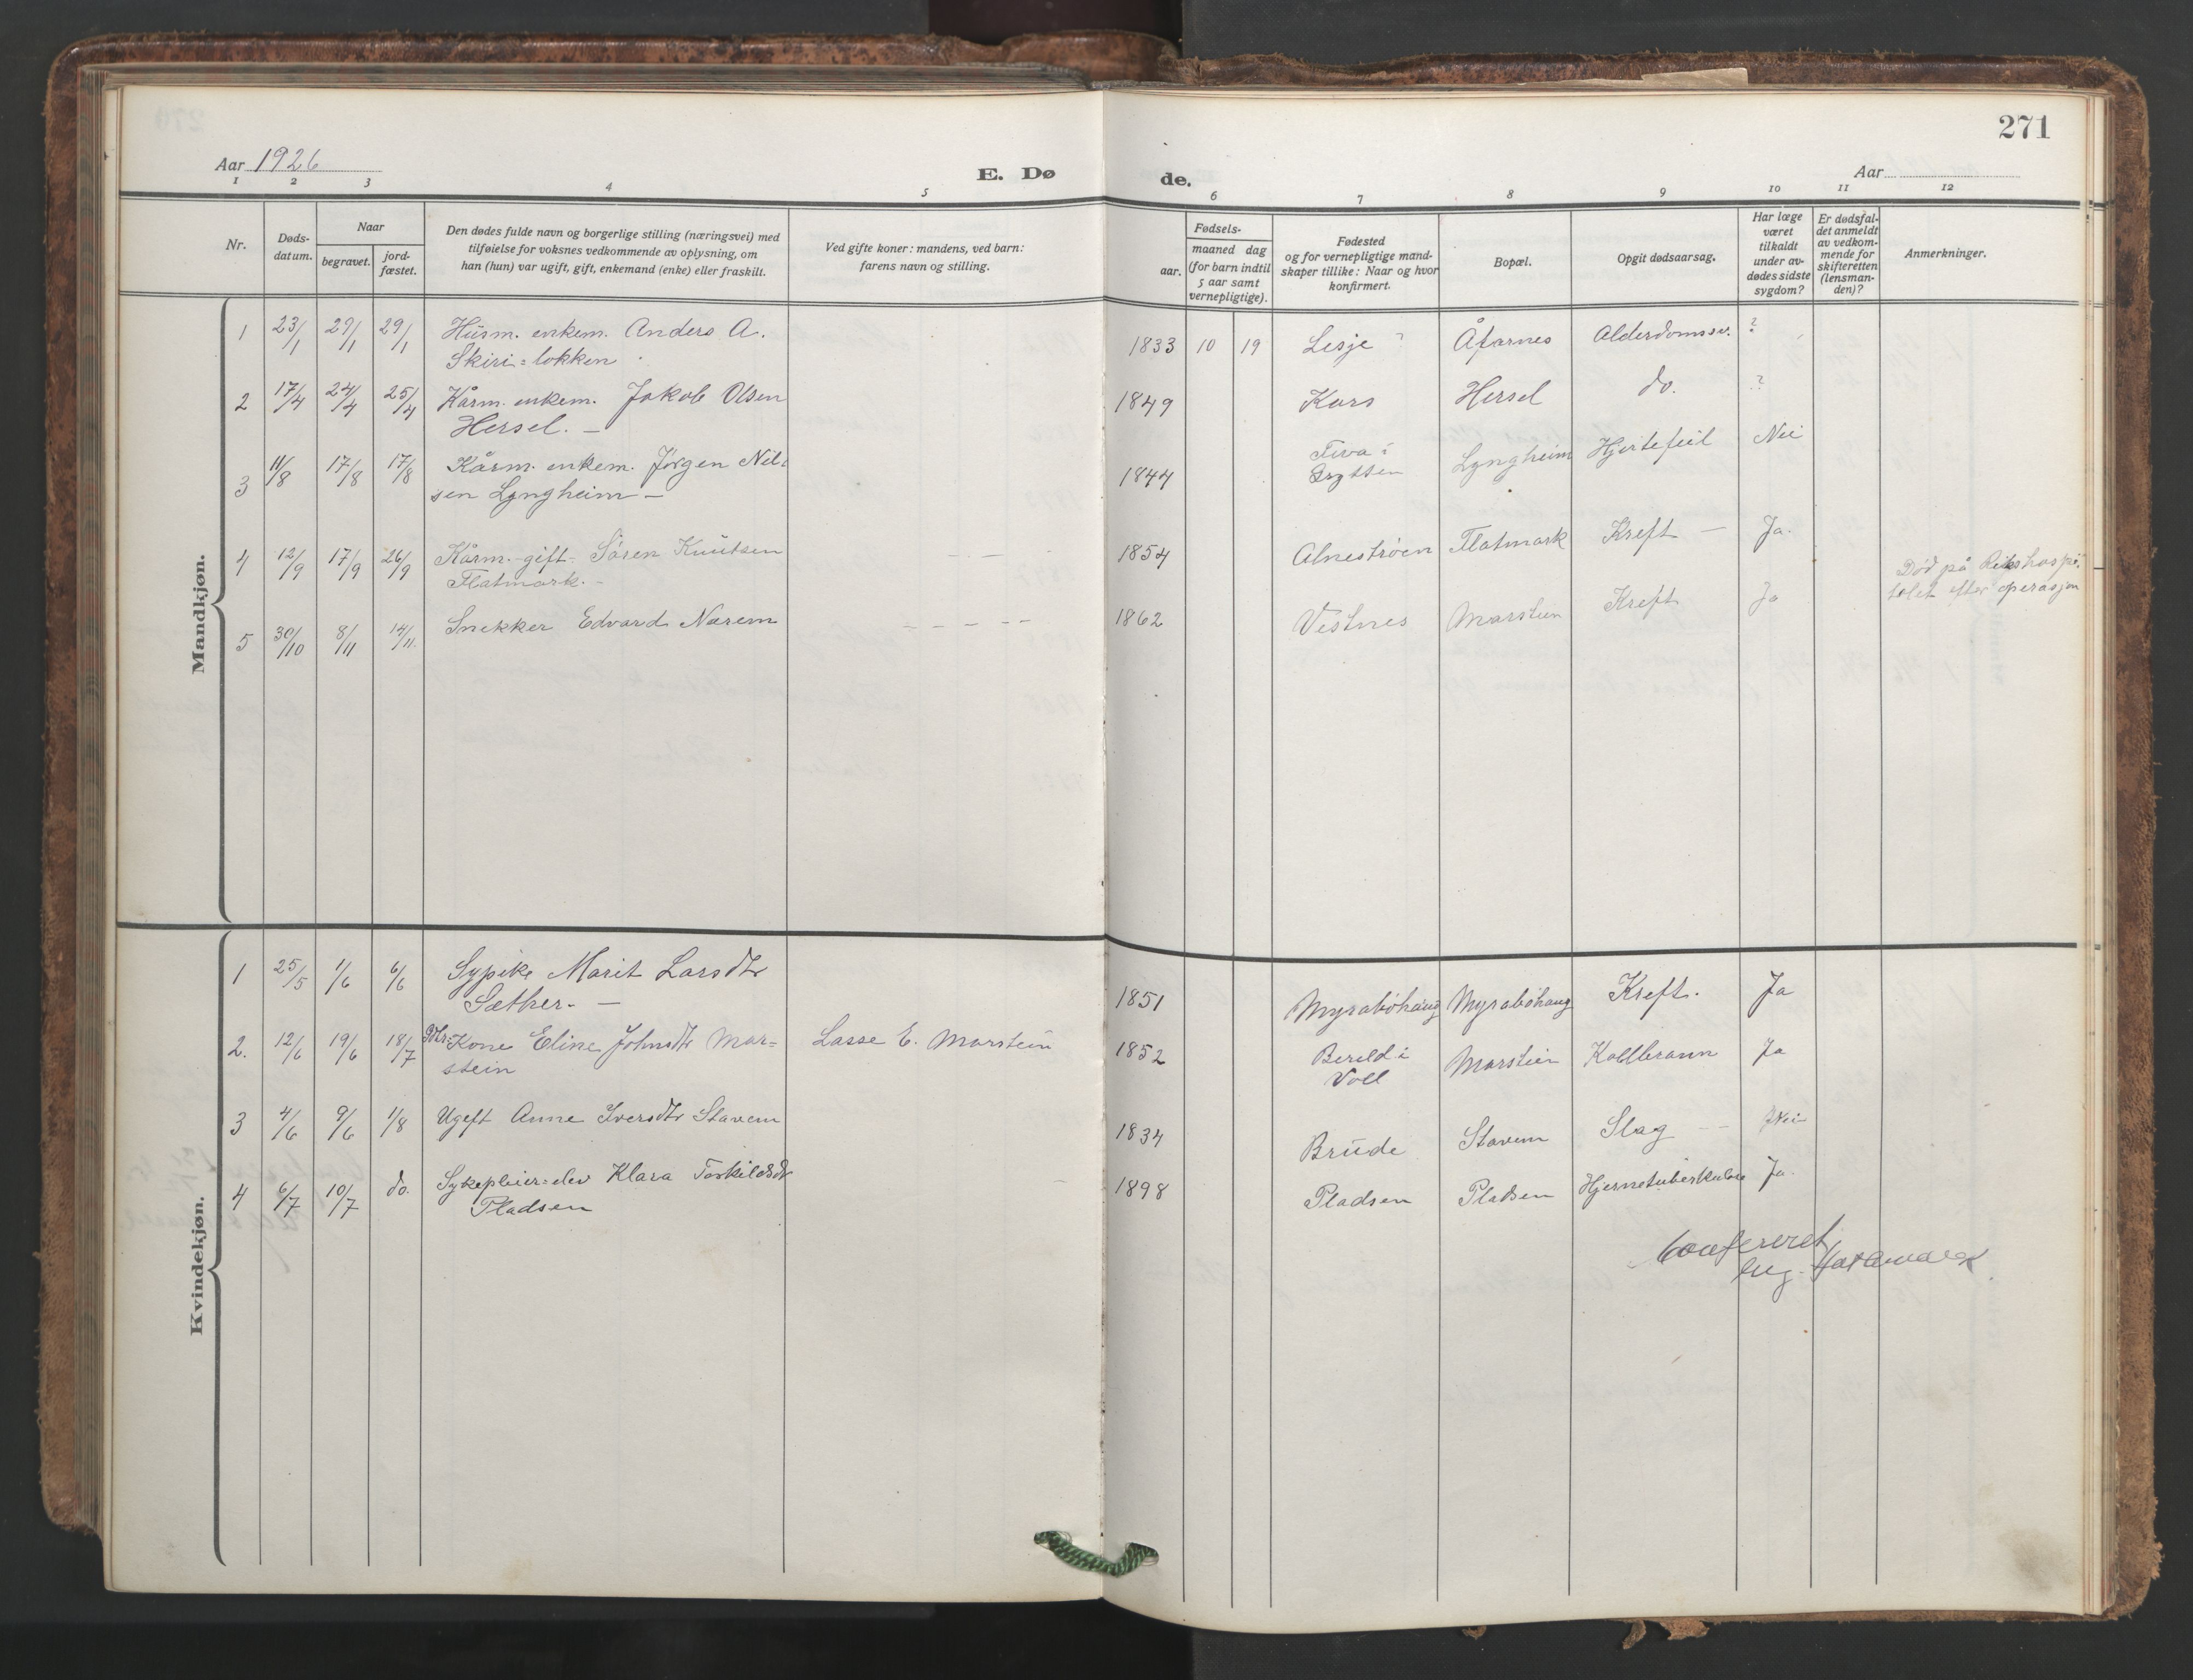 271
Aar 1926
E. Dø de.
Aar
1 2 3 4 5 6 7 8 9 10 11 12
Nr.
Døds-
datum.
Naar
begravet.
jord-
fæstet.
Den dødes fulde navn og borgerlige stilling (næringsvei) med
tilføielse for voksnes vedkommende av oplysning, om
han (hun) var ugift, gift, enkemand (enke) eller fraskilt.
Ved gifte koner: mandens, ved barn:
farens navn og stilling.
Fødsels-
aar.
maaned dag
(for barn indtil
5 aar samt
vernepligtige).
Fødested
og for vernepligtige mand-
skaper tillike: Naar og hvor
konfirmert.
Bopæl.
Opgit dødsaarsag.
Har læge
været
tilkaldt
under av-
dødes sidste
sygdom?
Er dødsfal-
det anmeldt
av vedkom-
mende for
skifteretten
(lensman-
den)?
Anmerkninger.
Mandkjøn.
1 23/1 29/1 29/1 Husm. enkem. Anders A.
Skiri=løkken
1833 10 19 Lesje ? Åfarnes Alderdomssv. ?
2 17/4 24/4 25/4 Kårm. enkem. Jakob Olsen
Hersel. —
1849 Kors Hersel do. ?
3 11/8 17/8 17/8 Kårm. enkem. Jørgen Nil-
sen Lyngheim —
1844 Fiva i
Grytten
Lyngheim Hjertefeil Nei
4 12/9 17/9 26/9 Kårm.-gift- Søren Knutsen
Flatmark. -
1854 Alnestrøen Flatmark Kreft — Ja.
5 30/10 8/11 14/11. Snekker Edvard Nærem
1862 Vestnes Marstein Kreft Ja
Død på Rikshospi-
talet efter operasjon
Kvindekjøn.
1 25/5 1/6 6/6 Sypike Marit Larsdtr
Sæther. —
1851 Myrabøhaug Myrabøhaug Kreft. Ja
2. 12/6 19/6 18/7 Kone Eline Johnsdtr Mar=
stein
Lasse E. Marstein 1852 Bereld i
Voll
Marstein Koldbrann Ja
3 4/6 9/6 1/8 Ugift Anne Iversdtr Stavem
1834 Brude Stavem Slag — Nei
4 6/7 10/7 do. Sykepleier=elev Klara Torkildsdtr
Pladsen
1898 Pladsen Pladsen Hjernetuberkulose Ja.
Confereret